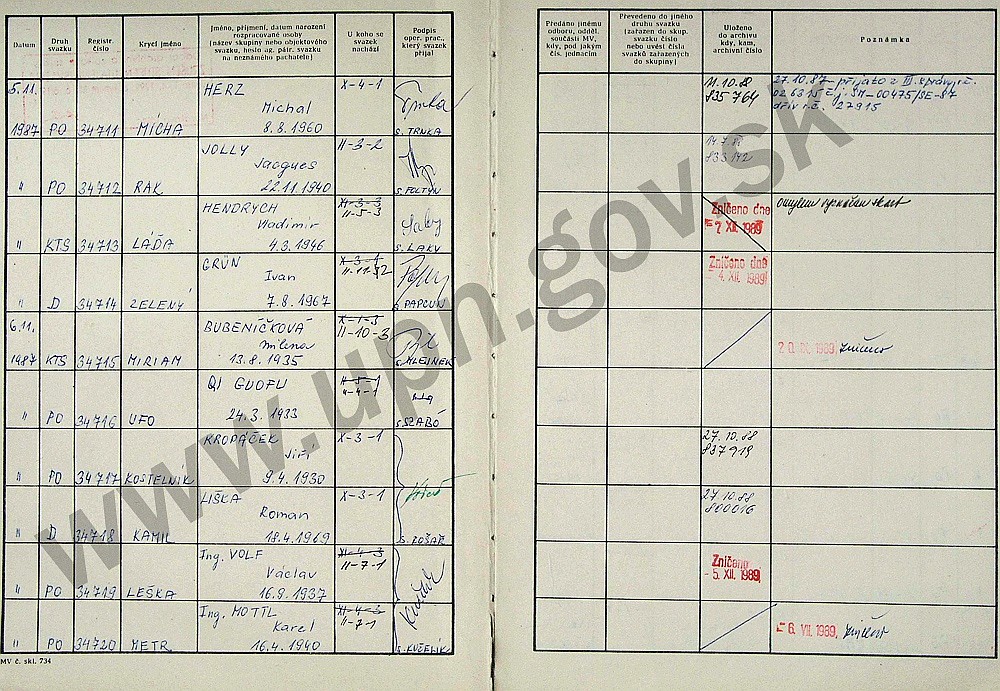 Datum
Druh svazku
Registr. číslo
Krycí jméno
Jméno, příjmení, datum narození
rozpracované osoby
(název skupiny nebo objektového
svazku, heslo ag. pátr. svazku
na neznámého pachatele)
U koho se
svazek
nachází
Podpis
oper. prac.,
který svazek
přijal
Předáno jinému
odboru, odděl.
součásti MV,
kdy, pod jakým
čís. jednacím
Převedeno do jiného
druhu svazku
(zařazen do skup.
svazku číslo
nebo uvést čísla
svazků zařazených
do skupiny)
Uloženo
do archivu
kdy, kam,
archivní číslo
Poznámka
5.11. HERZ X-4-1
Michal
1987 PO 34711 MÍCHA 8.8.1960 s. TRNKA
11.10.88
835764
27.10.87 - přijato z
dřív r.č. 27915
JOLLY II-3-2
Jacques
" PO 34712 RAK 22.11.1940 s. FOLTÝN
833142
HENDRYCH XI-3-3
Vladimír II-5-3
" KTS 34713 LÁĎA 4.3.1946 s. LAKY
Zničeno dne
7. XII. 1989
omylem
GRÜN X-3-1
Ivan
" D 34714 ZELENÝ 7.8.1967 s. PAPCUN
Zničeno dne
- 4. XII. 1989
6.11. BUBENÍČKOVÁ X-1-3
Milena II-10-3
1987 KTS 34715 MIRIAM 13.8.1935
1989, zničeno
QI GUOFU II-5-1
II-4-1
" PO 34716 UFO 24.3.1933 s. SZABÓ
KROPÁČEK X-3-1
Jiří
" PO 34717 KOSTELNÍK 9.4.1930
27.10.88
837919
LIŠKA X-3-1
Roman
" D 34718 KAMIL 18.4.1969
27.10.88
800016
Ing. VOLF XI-4-3
Václav II-7-1
" PO 34719 LEŠKA 16.9.1937
Zničeno
- 5. XII. 1989
Ing. MOTTL XI-4-3
Karel II-7-1
" PO 34720 METR 16.4.1940 s. KUČELÍK
- 6. VII. 1989, zničeno
MV č. skl. 734
www.upn.gov.sk